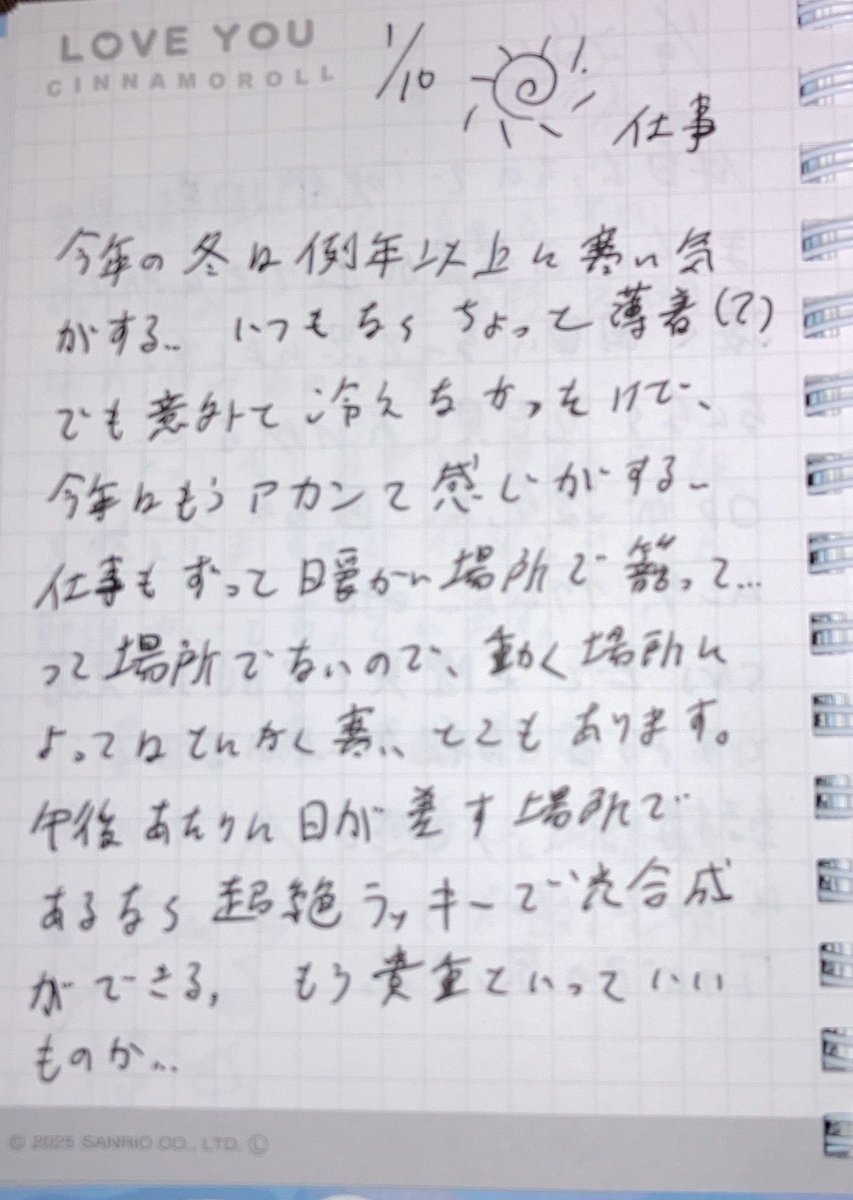 LOVE YOU
CINNAMOROLL
1/10
仕事
今年の冬は例年以上に寒い気
がする… いつもなら ちょっと薄着(?)
でも意外と冷えなかったけで、
今年はもうアカンて感じがする…
仕事もずって暖かい場所で籠って…
って場所でないので、動く場所に
よってはとにかく寒いとこもあります。
午後あたりに日が差す場所で
あるなら超絶ラッキーで光合成
ができる, もう貴重といっていい
ものか…
© 2025 SANRIO CO., LTD. Ⓛ